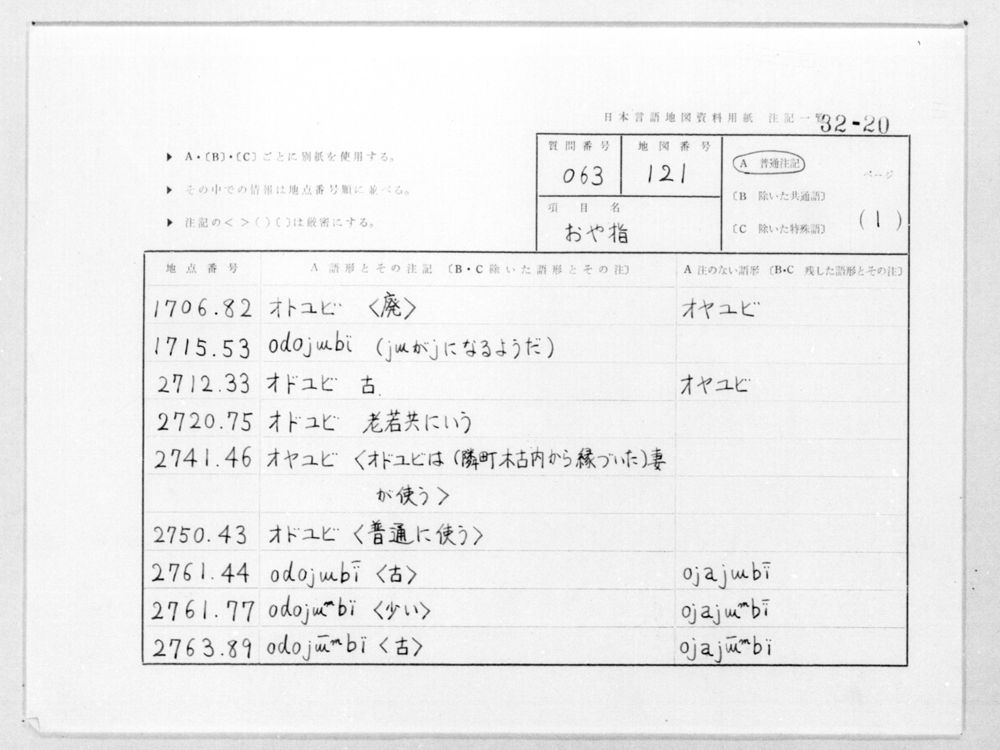 日本言語地図資料用紙 注記一覧 32-20
▶ A・〔B〕・〔C〕ごとに別紙を使用する。
▶ その中での情報は地点番号順に並べる。
▶ 注記の< >( )〔 〕は厳密にする。
質問番号 063
地図番号 121
項目名 おや指
A 普通注記
〔B 除いた共通語〕
〔C 除いた特殊語〕
ページ (1)
地点番号 A 語形とその注記〔B・C 除いた語形とその注〕 A 注のない語形〔B・C 残した語形とその注〕
1706.82 オトユビ 〈廃〉 オヤユビ
1715.53 odojɯbï (jɯがjになるようだ)
2712.33 オドユビ 古. オヤユビ
2720.75 オドユビ 老若共にいう
2741.46 オヤユビ〈オドユビは(隣町木古内から縁づいた)妻
が使う〉
2750.43 オドユビ〈普通に使う〉
2761.44 odojɯbï̄〈古〉 ojajɯbï̄
2761.77 odojɯᵐbï〈少い〉 ojajɯᵐbï̄
2763.89 odojɯ̄ᵐbï〈古〉 ojajɯ̄ᵐbï